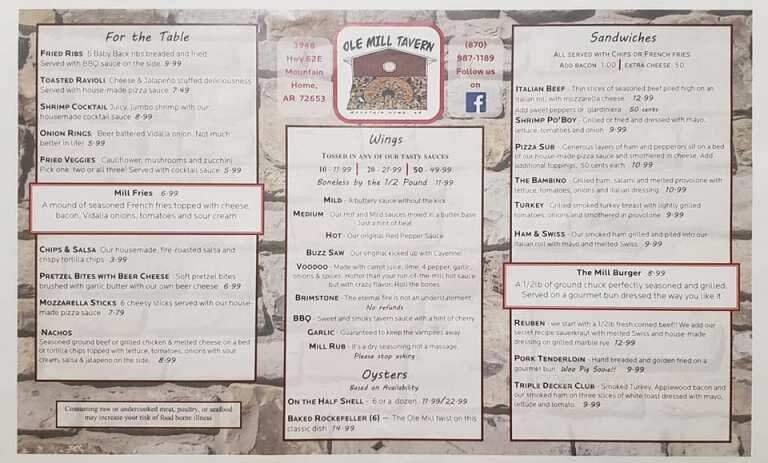 For the Table
Fried Ribs 5 Baby Back ribs breaded and fried.
Served with BBQ sauce on the side. 9.99
Toasted Ravioli Cheese & Jalapeño stuffed deliciousness
Served with house-made pizza sauce 7.49
Shrimp Cocktail Juicy, Jumbo shrimp with our
housemade cocktail sauce 8.99
Onion Rings Beer battered Vidalia onion. Not much
better in life! 5.99
Fried Veggies Cauliflower, mushrooms and zucchini
Pick one, two or all three! Served with cocktail sauce. 5.99
Mill Fries 6.99
A mound of seasoned French fries topped with cheese,
bacon, Vidalia onions, tomatoes and sour cream
Chips & Salsa Our housemade, fire-roasted salsa and
crispy tortilla chips 3.99
Pretzel Bites with Beer Cheese Soft pretzel bites
brushed with garlic butter with our own beer cheese 6.99
Mozzarella Sticks 6 cheesy sticks served with our house-
made pizza sauce 7.79
Nachos
Seasoned ground beef or grilled chicken & melted cheese on a bed
or tortilla chips topped with lettuce, tomatoes, onions with sour
cream, salsa & jalapeno on the side... 8.99
Consuming raw or undercooked meat, poultry, or seafood
may increase your risk of food borne illness
3948
Hwy 62E
Mountain
Home,
AR 72653
OLE MILL TAVERN
MOUNTAIN HOME, AR
(870)
987-1189
Follow us
on
f
Wings
Tossed in any of our tasty sauces
10 - 11.99 | 20 - 21.99 | 50 - 49.99
Boneless by the 1/2 Pound 11.99
Mild - A buttery sauce without the kick
Medium - Our Hot and Mild sauces mixed in a butter base
- Just a hint of heat
Hot - Our original Red Pepper Sauce
Buzz Saw - Our original kicked up with Cayenne!
Voodoo - Made with carrot juice, lime, 4 pepper, garlic,
onions & spices. Hotter than your run-of-the-mill hot sauce
but with crazy flavor. Roll the bones
Brimstone - The eternal fire is not an understatement.
No refunds
BBQ - Sweet and smoky tavern sauce with a hint of cherry
Garlic - Guaranteed to keep the vampires away
Mill Rub - It's a dry seasoning not a massage.
Please stop asking
Oysters
Based on Availability
On the Half Shell - 6 or a dozen 11.99/22.99
Baked Rockefeller (6) — The Ole Mill twist on this
classic dish 14.99
Sandwiches
All served with Chips or French fries
Add bacon 1.00 | extra cheese .50
Italian Beef - Thin slices of seasoned beef piled high on an
Italian roll with mozzarella cheese 12.99
Add sweet peppers or giardiniera .50 cents
Shrimp Po'Boy - Grilled or fried and dressed with mayo,
lettuce, tomatoes and onion 9.99
Pizza Sub - Generous layers of ham and pepperoni sit on a bed
of our house-made pizza sauce and smothered in cheese. Add
additional toppings, 50 cents each 10.99
The Bambino - Grilled ham, salami and melted provolone with
lettuce, tomatoes, onions and Italian dressing. 10.99
Turkey - Grilled smoked turkey breast with lightly grilled
tomatoes, onions and smothered in provolone 9.99
Ham & Swiss - Our smoked ham grilled and piled into our
Italian roll with mayo and melted Swiss. 9.99
The Mill Burger 8.99
A 1/2lb of ground chuck perfectly seasoned and grilled.
Served on a gourmet bun dressed the way you like it
Reuben - we start with a 1/2lb fresh corned beef!! We add our
secret recipe sauerkraut with melted Swiss and house-made
dressing on grilled marble rye 12.99
Pork Tenderloin - Hand breaded and golden fried on a
gourmet bun. Woo Pig Sooie!! 9.99
Triple Decker Club - Smoked Turkey, Applewood bacon and
our smoked ham on three slices of white toast dressed with mayo,
lettuce and tomato 9.99